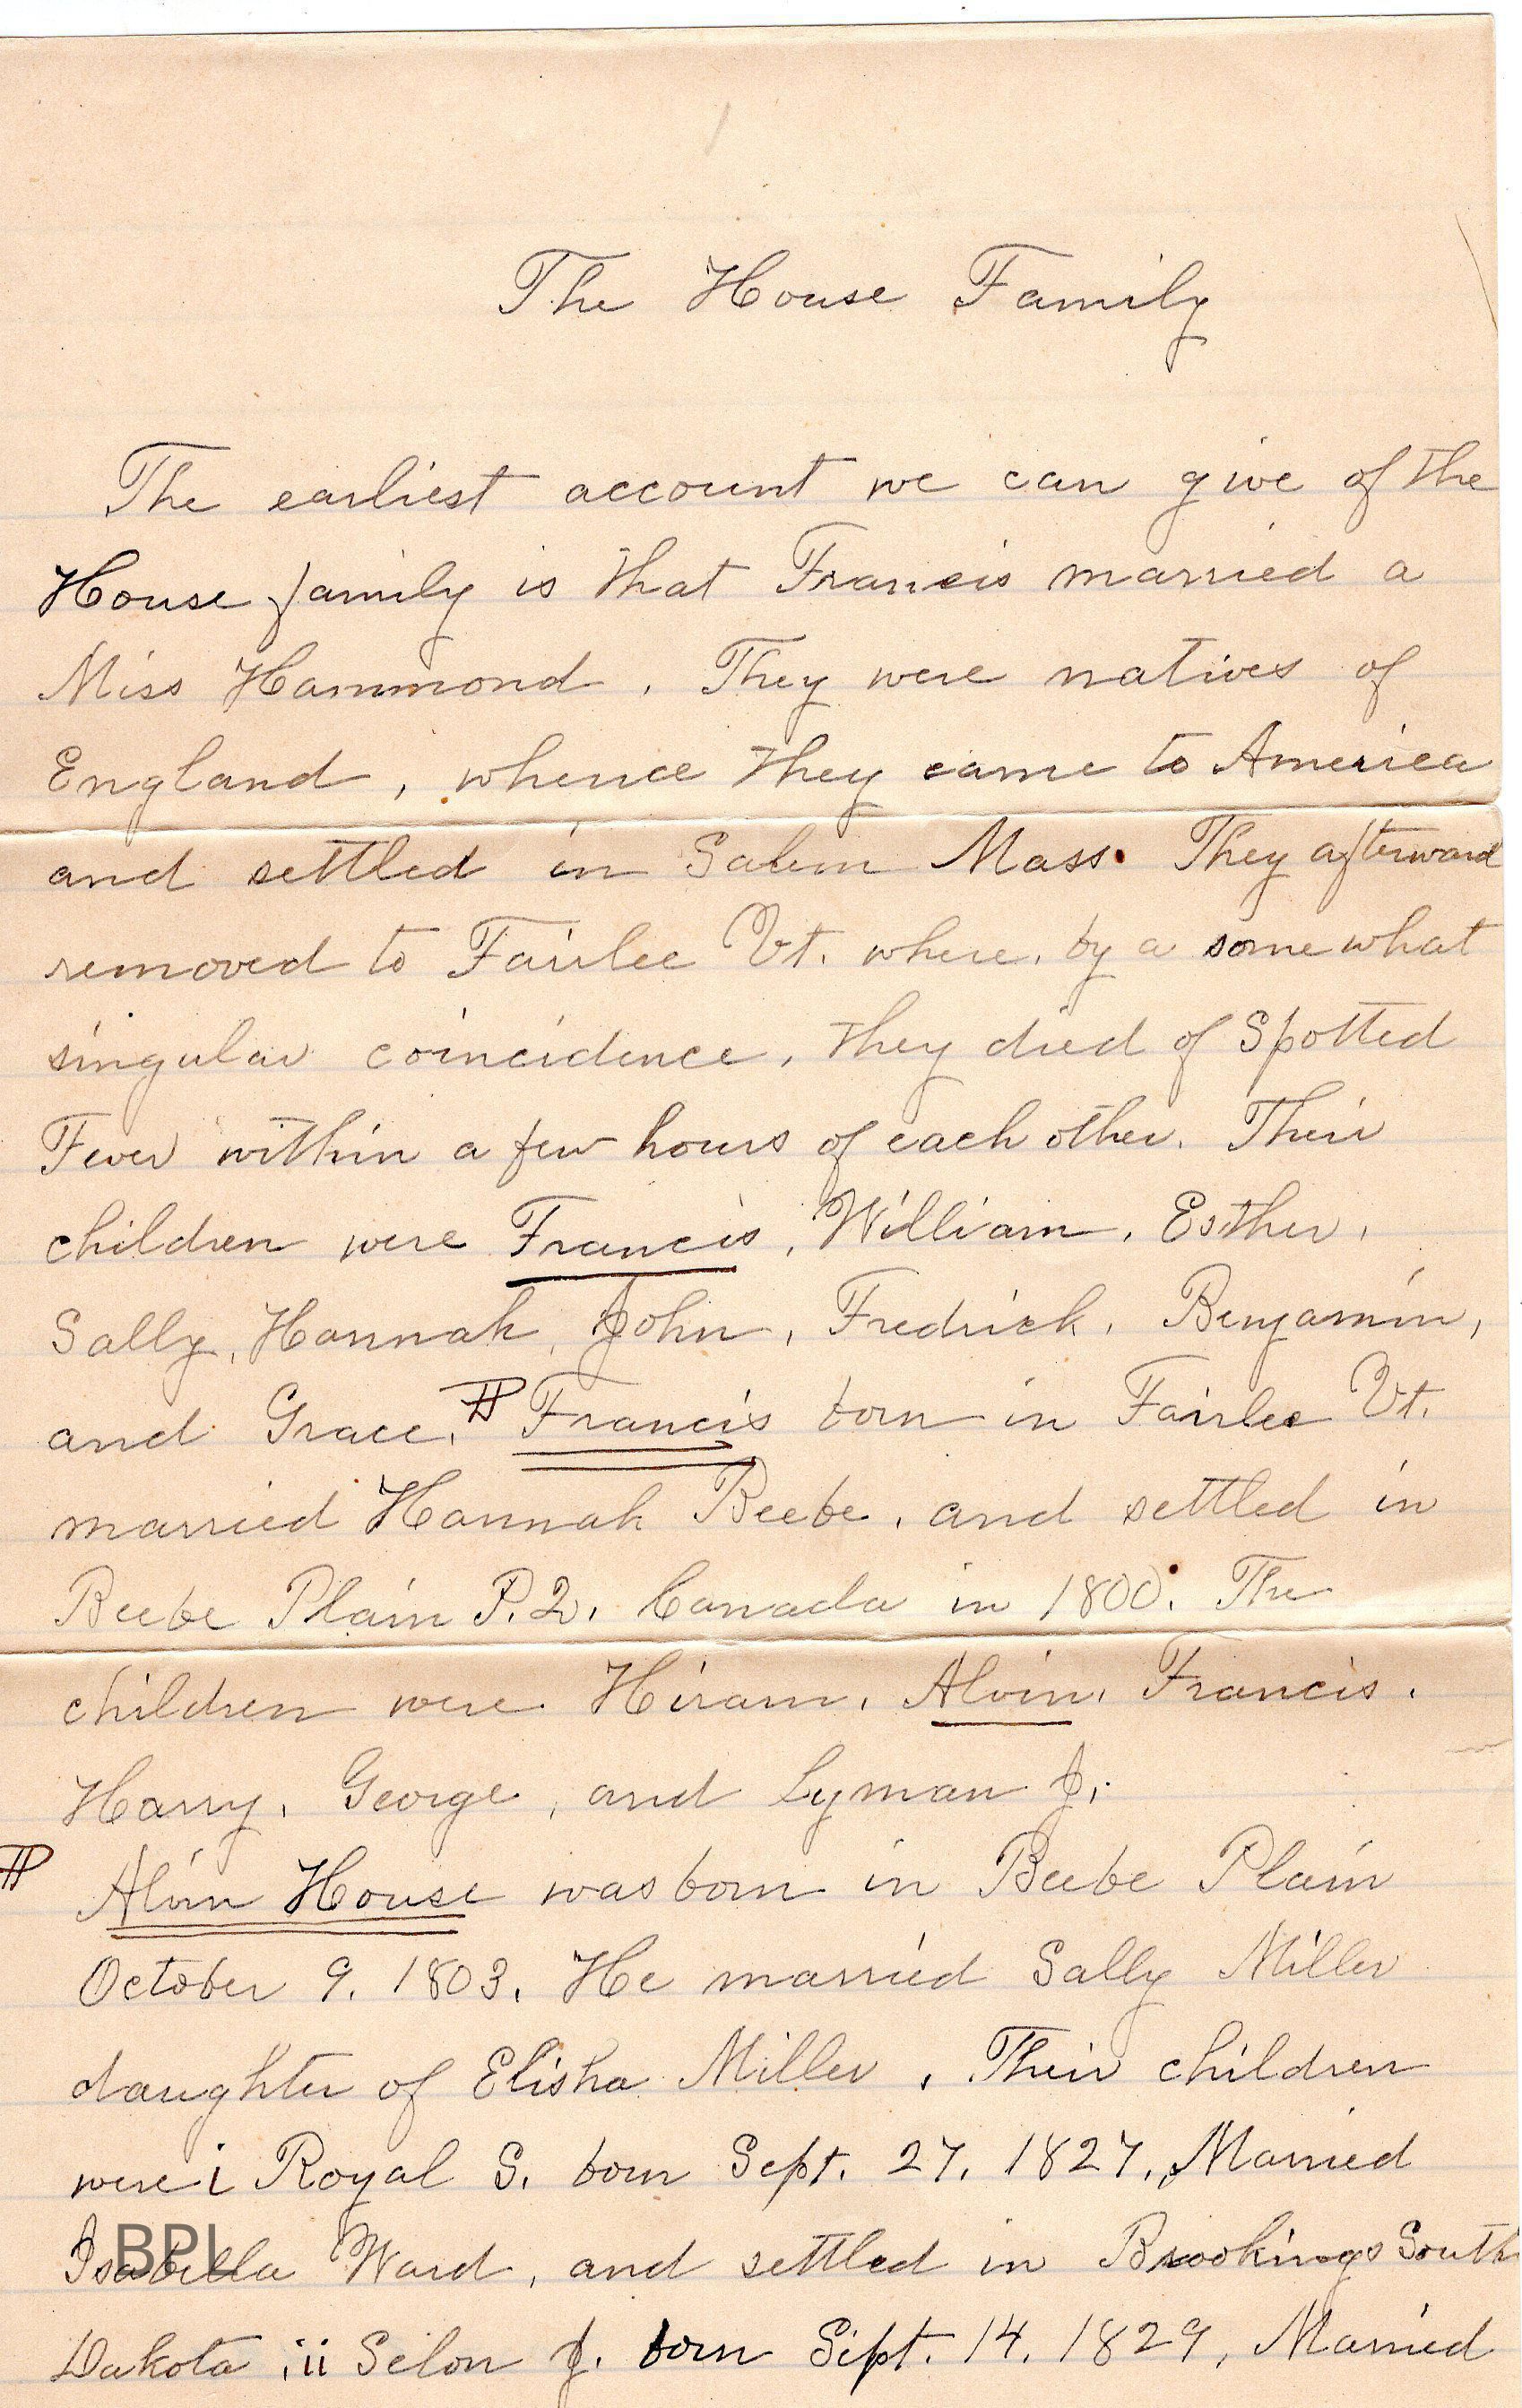 The House Family
The earliest account we can give of the
House family is that Francis married a
Miss Hammond. They were natives of
England, whence they came to America
and settled in Salem Mass. They afterward
removed to Fairlee Vt. where, by a somewhat
singular coincidence, they died of Spotted
Fever within a few hours of each other. Their
children were Francis, William, Esther,
Sally, Hannah, John, Fredrick, Benjamin,
and Grace. Francis born in Fairlee Vt.
married Hannah Beebe, and settled in
Beebe Plain P.Q. Canada in 1800. The
children were Hiram, Alvin, Francis,
Harry, George, and Lyman J.
Alvin House was born in Beebe Plain
October 9, 1803. He married Sally Miller
daughter of Elisha Miller. Their children
were i Royal S. born Sept. 27, 1827, Married
Isabella Ward, and settled in Brookings South
Dakota, ii Selon J. born Sept. 14, 1829, Married
BPL